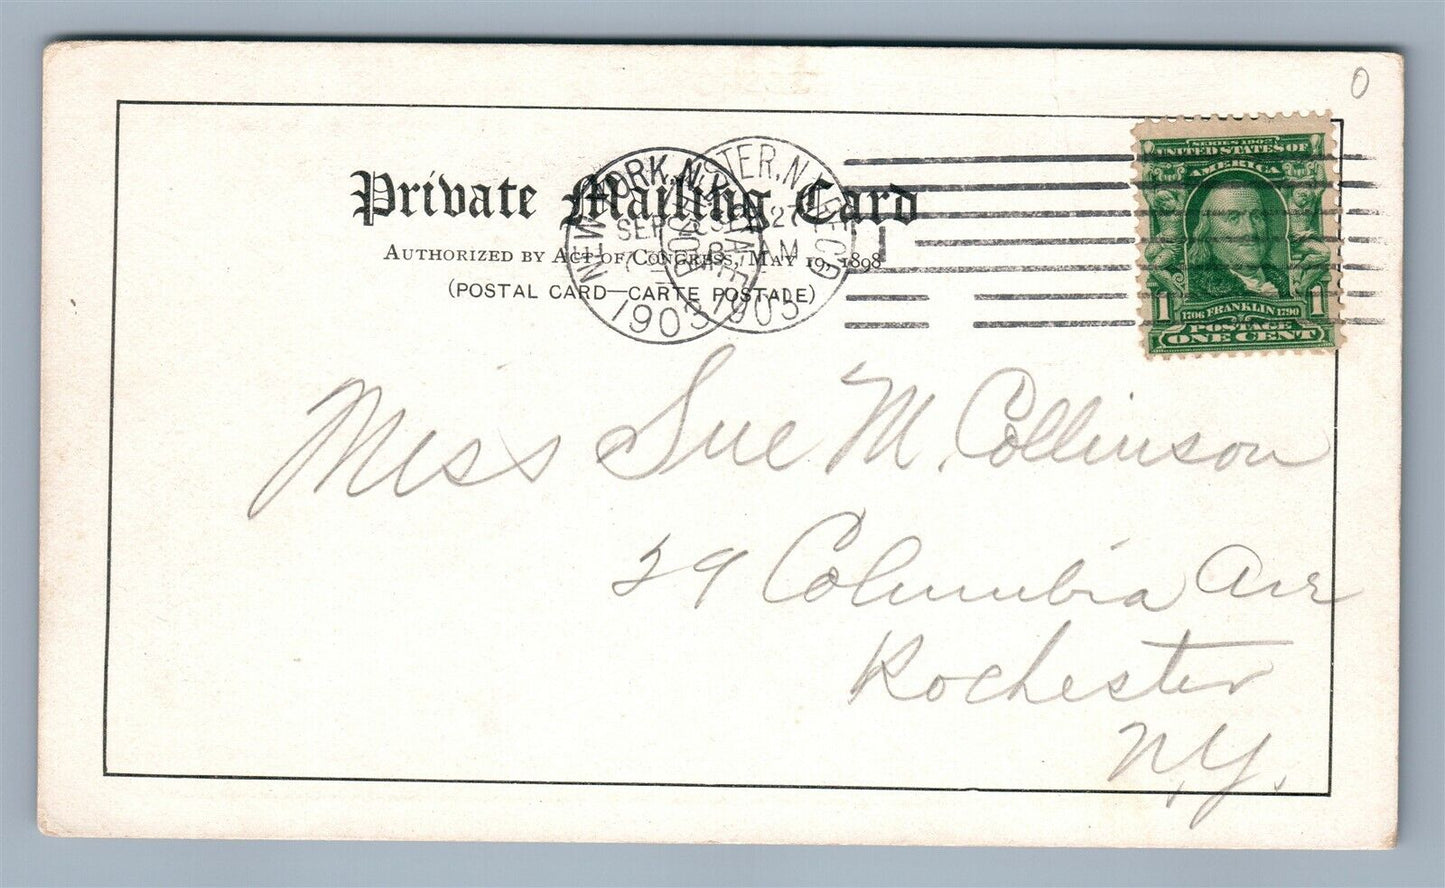 O
SERIES 1902
UNITED STATES OF
AMERICA
1 1
1706 FRANKLIN 1790
POSTAGE
ONE CENT
Private Mailing Card
AUTHORIZED BY ACT OF CONGRESS, MAY 19, 1898
(POSTAL CARD—CARTE POSTALE)
NEW YORK, N.Y.
SEP
1903
ROCHESTER, N.Y.
SEP 27
8 AM
1903
REC'D
Miss Sue M. Collinson
29 Columbia Ave
Rochester
N.Y.